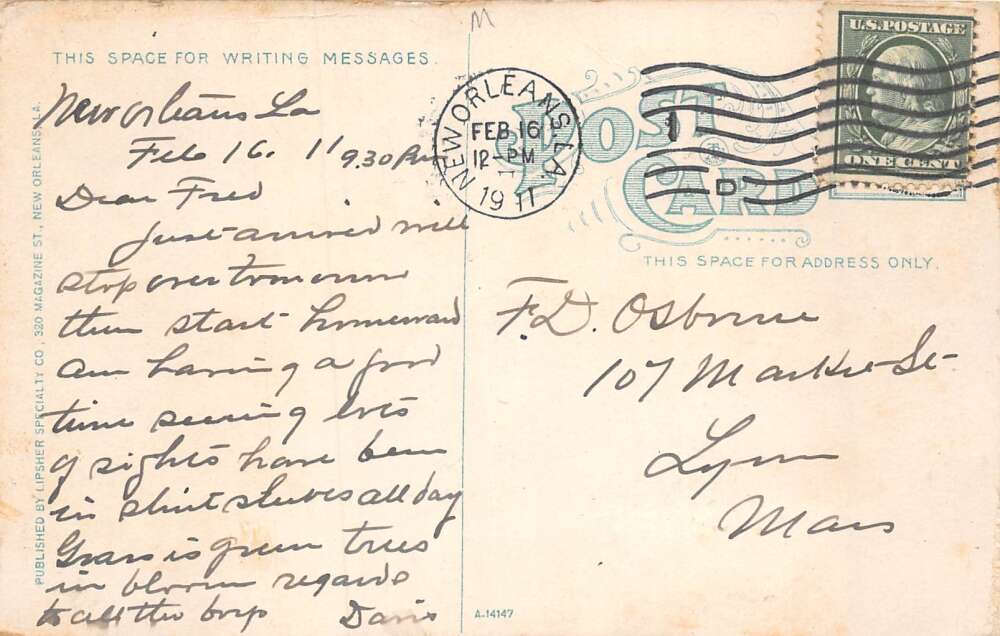 M
THIS SPACE FOR WRITING MESSAGES.
New Orleans La
Feb 16. 11 9.30 Pm
Dear Fred
Just arrived will
stop over tomorrow
then start homeward
am having a good
time seeing lots
of sights have been
in shirt sleeves all day
Grass is green trees
in bloom regards
to all the boys Davis
PUBLISHED BY LIPSHER SPECIALTY CO., 320 MAGAZINE ST., NEW ORLEANS, LA.
NEW ORLEANS, LA.
FEB 16
12-PM
1911
1
D
U.S. POSTAGE
ONE CENT
POST
CARD
THIS SPACE FOR ADDRESS ONLY.
F. D. Osborne
107 Market St
Lynn
Mass
A-14147